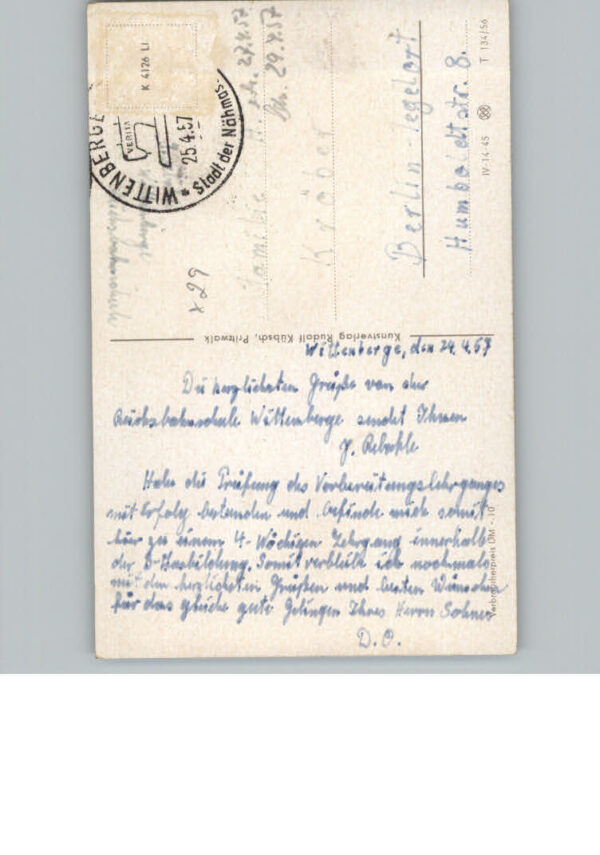 K 4126 LI
WITTENBERGE
VERITAS
25.4.57
* Stadt der Nähmas
27.4.57
29.4.57
Familie
Kröber
Berlin-Tegelort
Humboldtstr. 8.
IV-14-45 T 134/56
x 29
Kunstverlag Rudolf Kübsch, Pritzwalk
Wittenberge, den 24.4.57
Die herzlichsten Grüße von der
Reichsbahnschule Wittenberge sendet Ihnen
Habe die Prüfung des Vorbereitungslehrganges
mit Erfolg bestanden und befinde mich somit
hier zu einem 4-Wöchigen Lehrgang innerhalb
der Ausbildung. Somit verbleibe ich nochmals
mit den herzlichsten Grüßen und besten Wünschen
für das gleiche gute Gelingen Ihres Herrn Sohnes
D.O.
Verbraucherpreis DM -.10